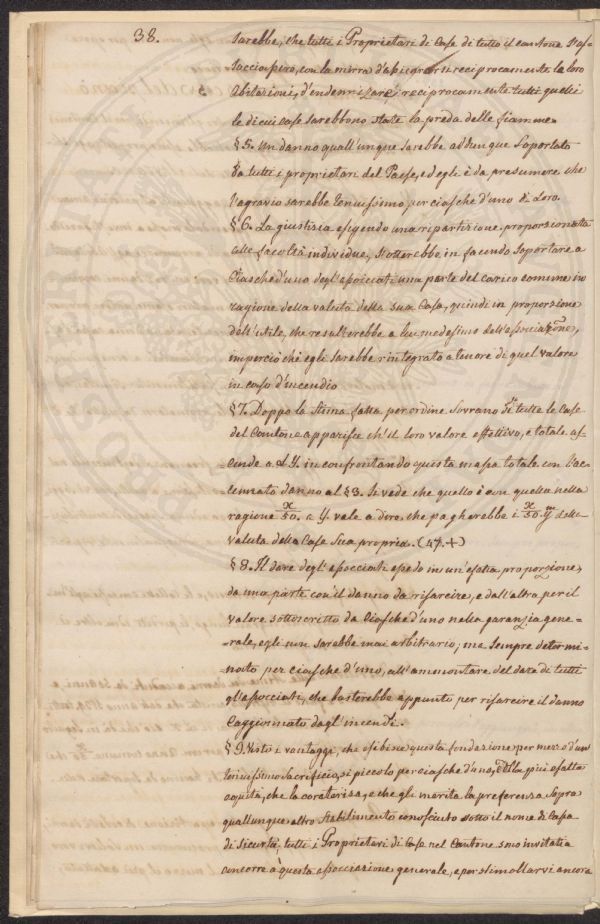 38.
sarebbe, che tutti i Proprietari di Case di tutto il cantone s'as-
sociassero, con la mira d'assicurarsi reciprocamente le loro
abitazioni, d'endennizare reciprocamente tutti quelli
le di cui case sarebbono state la preda delle fiamme.
§ 5. Un danno quall'unque sarebbe addunque soportato
da tutti i proprietari del Paese, ed egli è da presumere che
l'agravio sarebbe tenuissimo per ciasche d'uno di Loro.
§ 6. La giustizia esigendo una ripartizione proporzionata
alle facoltà individue, s'otterebbe in facendo soportare a
Ciasched'uno degl'associati una parte del carico comune in
ragione della valuta della sua Casa, quindi in proporzione
dell'utile, che resulterebbe a lui medesimo dell'associazione,
imperciò chè egli sarebbe rintegrato a tenore di quel valore
in caso d'incendio
§ 7. Doppo la stima fatta per ordine Sovrano di tutte le Case
del Cantone apparisce ch'il loro valore effettivo, e totale as-
cende a £ Y. in confrontando questa massa totale con l'ac-
cennato danno al § 3. si vede che quello è con quella nella
ragione x/50. a y. vale a dire, che pagherebbe i x/50 y.m della
valuta della Casa sua propria. (47.+)
§ 8. Il dare degl'associati essedo in un'esatta proporzione,
da una parte con il danno da rifarcire, e dall'altra per il
valore sottoscritto da Ciasche d'uno nella garanzia gene-
rale, egli non sarebbe mai arbitrario; ma sempre determi-
nato per ciasche d'uno, all'amontare del dare di tutti
gl'associati, che basterebbe appunto per rifarcire il danno
Caggionato dagl'incendi.
§ 9. Visto i vantaggi, che esibisce questa fondazione per mezzo d'un
tenuissimo sacrificio, si piccolo per ciasche d'uno, della più esatta
equità, che la caraterisa, e che gli merita la preferenza sopra
quallunque altro stabilimento conosciuto sotto il nome di Cassa
di Sicurtà; tutti i Proprietari di Case nel Cantone sono invitati a
concorre a questa associazione generale, e per stimollarvi ancora